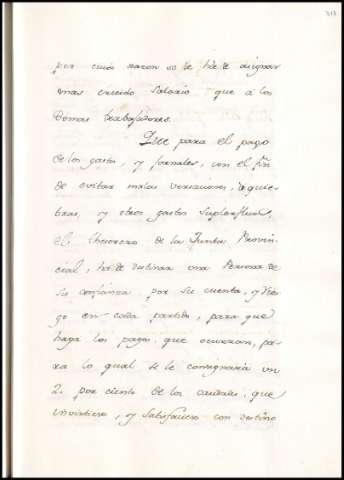 por cuia razon se le ha de asignar
mas crecido salario que a los
demas trabajadores.
Que para el pago
de los gastos, y jornales, con el fin
de evitar malas versaciones, quie-
bras, y otros gastos superfluos,
el thesorero de la Junta Provin-
cial, ha de destinar una Persona de
su confianza, por su cuenta, y ries-
go en cada partido, para que
haga los pagos, que ocurran, pa-
ra lo qual se le consignará un
2. por ciento de los caudales, que
invirtiere, y satisfaciere con destino